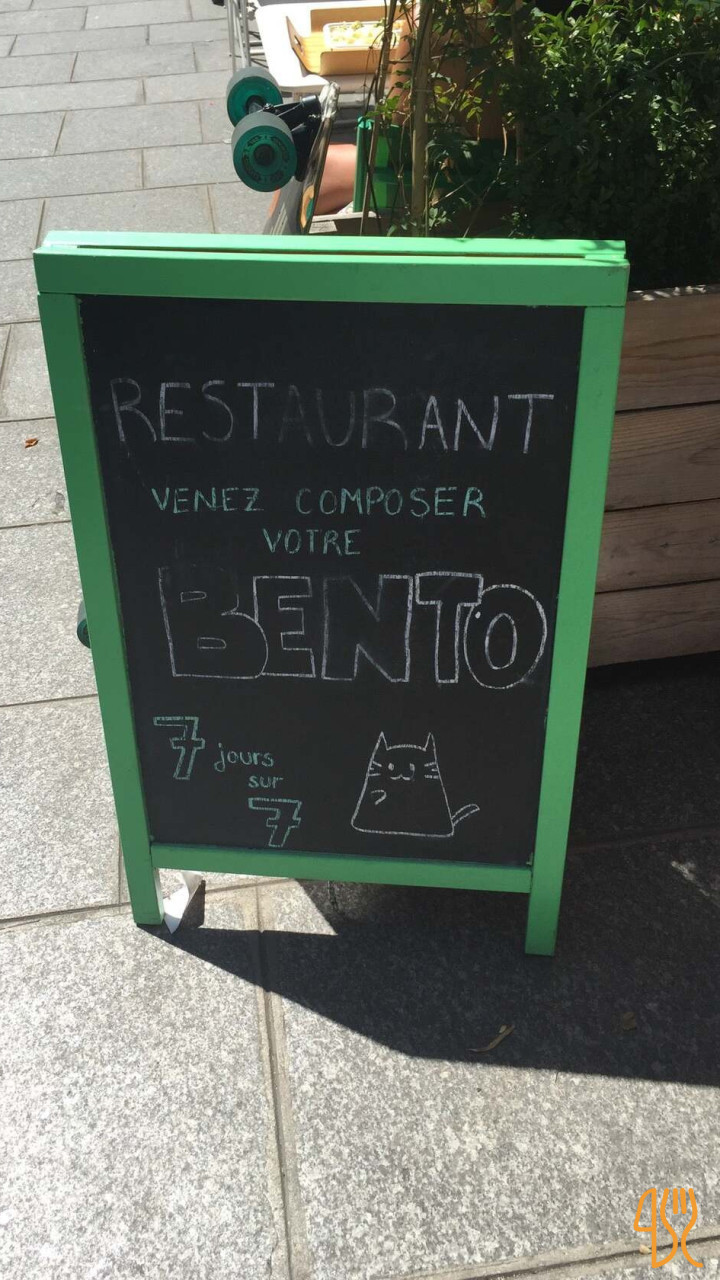 RESTAURANT
VENEZ COMPOSER
VOTRE
BENTO
7 jours
sur
7